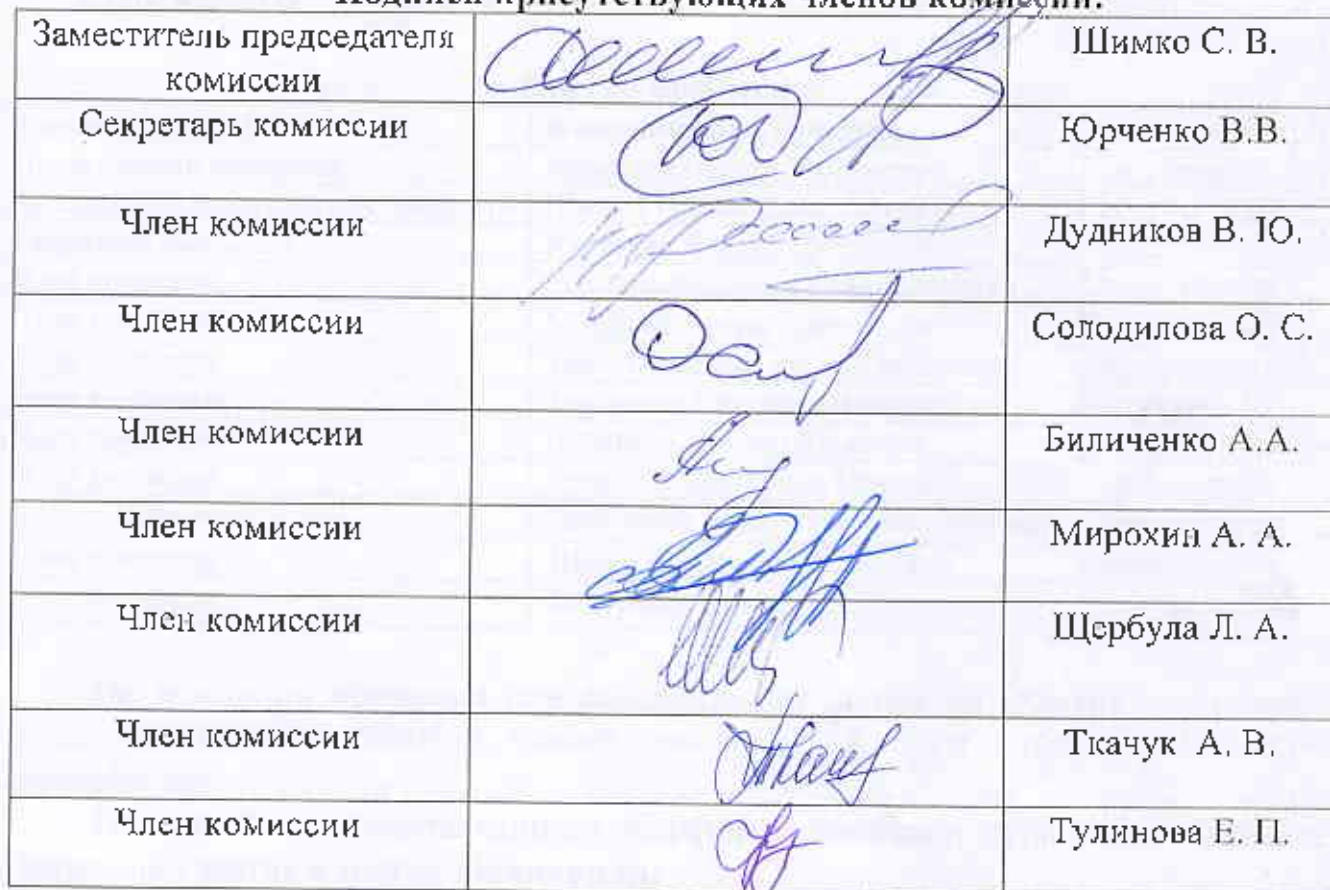 Подписи присутствующих членов комиссии:
Заместитель председателя
комиссии
Шимко С. В.
Секретарь комиссии
Юрченко В.В.
Член комиссии
Дудников В. Ю.
Член комиссии
Солодилова О. С.
Член комиссии
Биличенко А.А.
Член комиссии
Мирохин А. А.
Член комиссии
Щербула Л. А.
Член комиссии
Ткачук А. В.
Член комиссии
Тулинова Е. П.